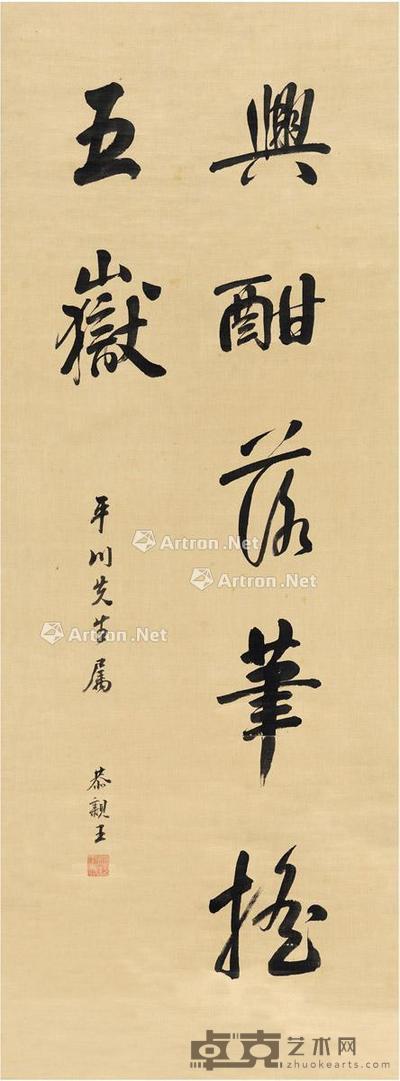 興酣落筆搖
五嶽
平川先生屬
恭親王
Artron.Net
Artron.Net
Artron.Net
卓克艺术网
zhuokearts.com